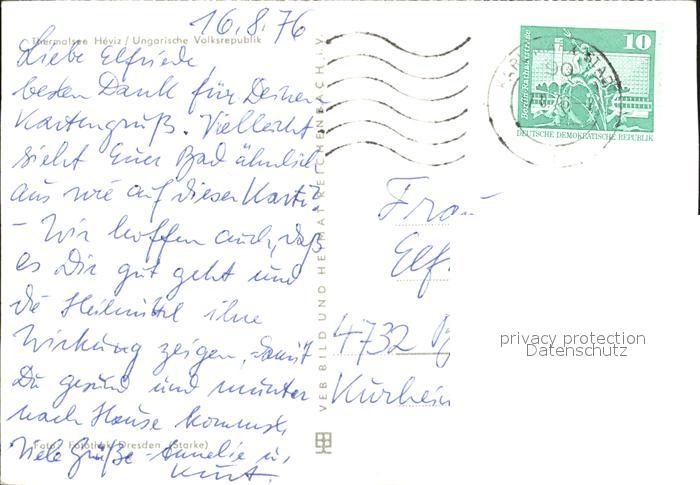 16.8.76
Thermalsee Héviz / Ungarische Volksrepublik
Liebe Elfriede,
besten Dank für Deinen
Kartengruß. Vielleicht
sieht Euer Bad ähnlich
aus wie auf dieser Karte?
- Wir hoffen auch, daß
es Dir gut geht und
die Heilmittel ihre
Wirkung zeigen, damit
Du gesund und munter
nach Hause kommst.
Foto: Fotothek Dresden (Starke)
Viele Grüße - Annelie u.
Kurt.
VEB BILD UND HEIMAT REICHENBACH i.V.
10
Berlin, Rathausstraße
DEUTSCHE DEMOKRATISCHE REPUBLIK
90
Frau
Elf.
4732
Kurheim
privacy protection
Datenschutz